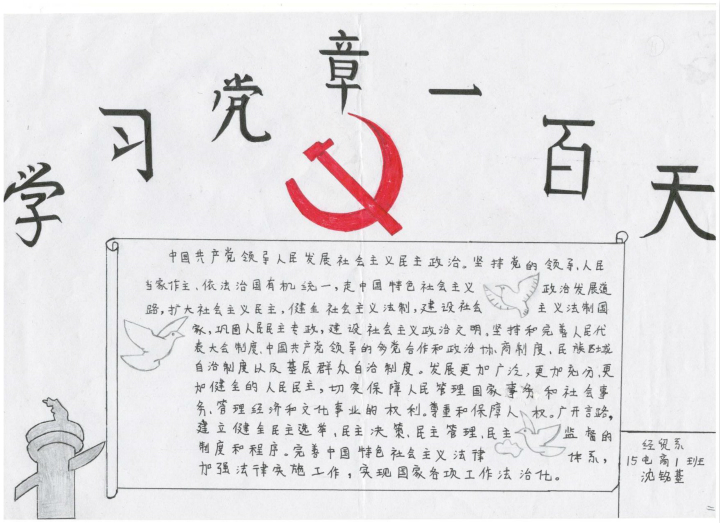 学习党章一百天
中国共产党领导人民发展社会主义民主政治。坚持党的领导、人民
当家作主、依法治国有机统一,走中国特色社会主义政治发展道
路,扩大社会主义民主,健全社会主义法制,建设社会主义法制国
家,巩固人民民主专政,建设社会主义政治文明,坚持和完善人民代
表大会制度、中国共产党领导的多党合作和政治协商制度、民族区域
自治制度以及基层群众自治制度。发展更加广泛,更加充分、更
加健全的人民民主,切实保障人民管理国家事务和社会事
务、管理经济和文化事业的权利。尊重和保障人权。广开言路,
建立健全民主选举、民主决策、民主管理、民主监督的
制度和程序。完善中国特色社会主义法律体系,
加强法律实施工作,实现国家各项工作法治化。
经贸系
15电商1班
沈铭萱